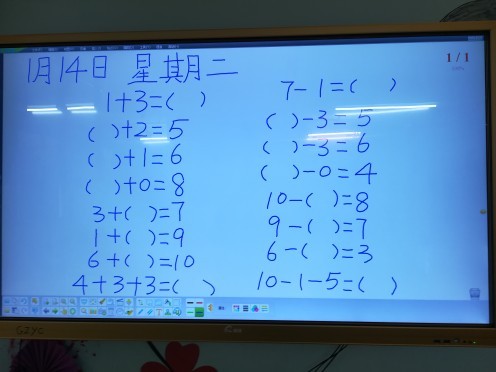 1月14日 星期二
1/1
1+3=( )
( )+2=5
( )+1=6
( )+0=8
3+( )=7
1+( )=9
6+( )=10
4+3+3=( )
7-1=( )
( )-3=5
( )-3=6
( )-0=4
10-( )=8
9-( )=7
6-( )=3
10-1-5=( )
GZYC